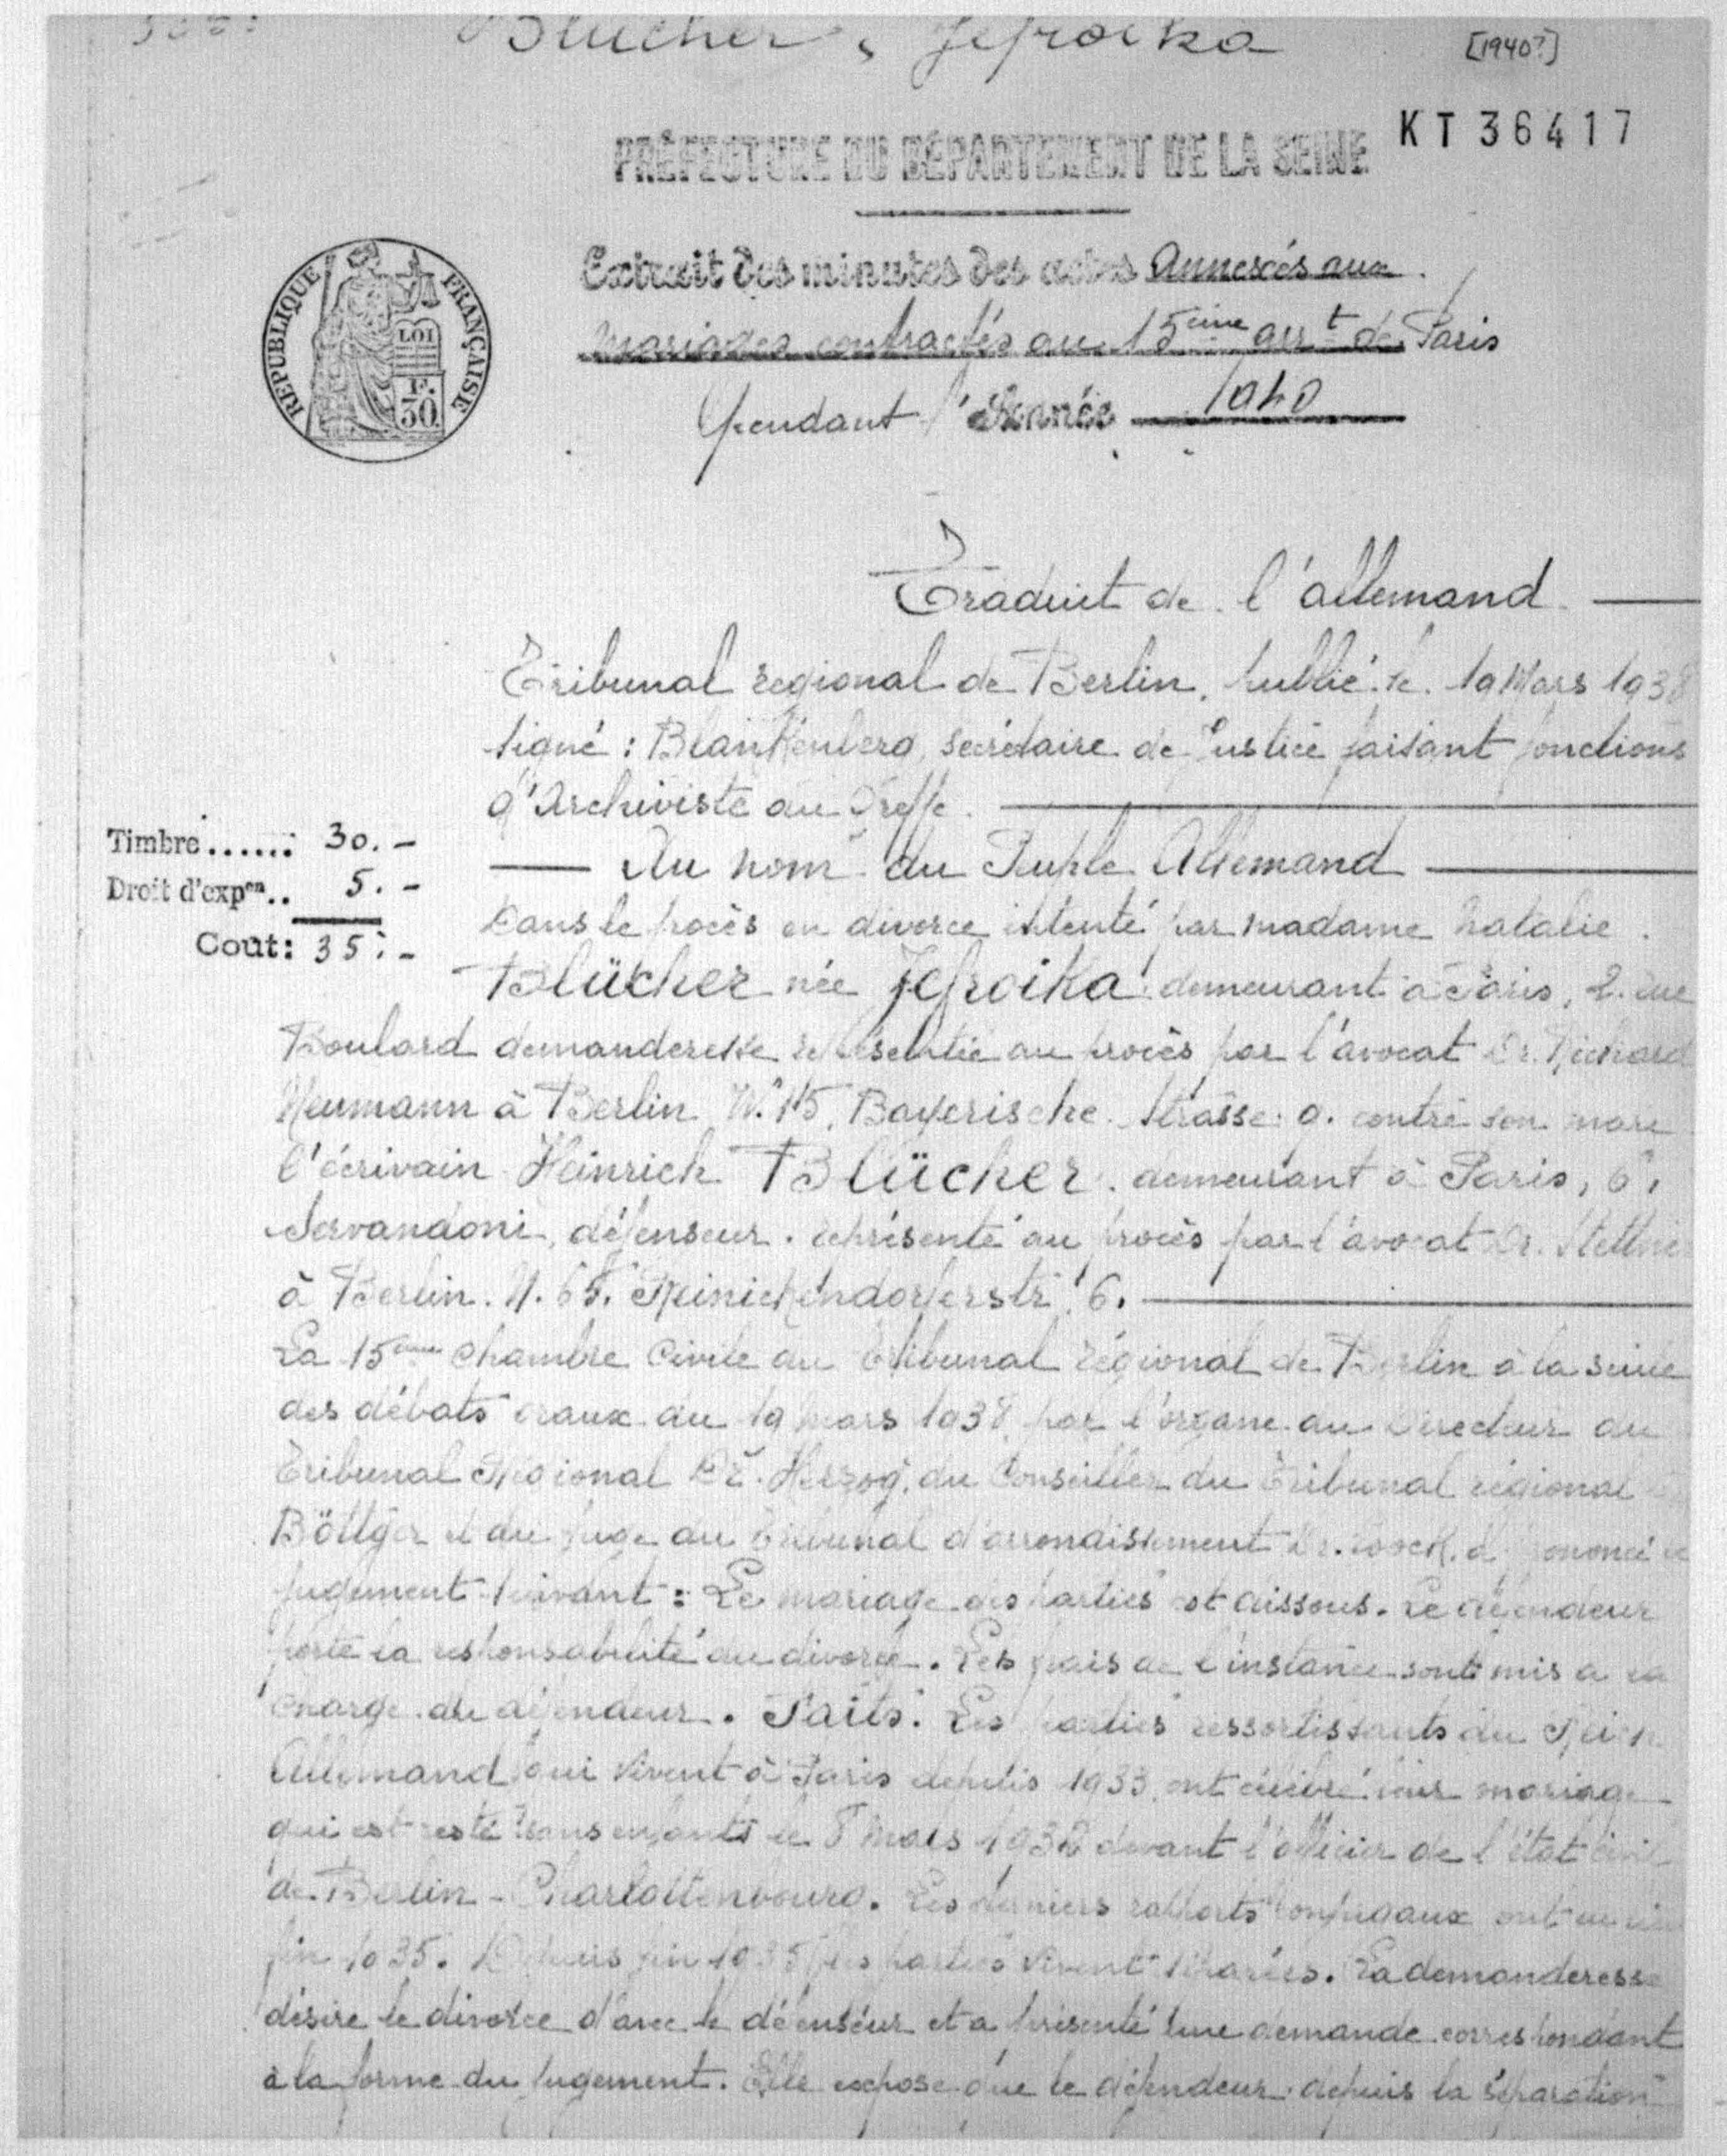 Blücher, Jefroika
[1940?]
KT 36417
PRÉFECTURE DU DÉPARTEMENT DE LA SEINE
RÉPUBLIQUE FRANÇAISE
LOI
F.
30
Extrait des minutes des actes Annexés aux
mariages contractés au 15ème arrt de Paris
pendant l'Année 1940
Traduit de l'allemand
Tribunal régional de Berlin, publié le 19 Mars 1938
signé : Blankenberg, secrétaire de Justice faisant fonctions
d'Archiviste au Greffe.
Timbre...... 30.-
Droit d'expon.. 5.-
Cout: 35.-
Au nom du Peuple Allemand
Dans le procès en divorce intenté par madame Natalie
Blücher née Jefroika demeurant à Paris, 2. rue
Boulard demanderesse représentée au procès par l'avocat Dr. Richard
Neumann à Berlin W. 15, Bayerische Strasse 9. contre son mari
l'écrivain Heinrich Blücher demeurant à Paris, 6,
Servandoni, défenseur. représenté au procès par l'avocat Dr.
à Berlin. N. 65. Reinickendorferstr. 6.
La 15ème Chambre Civile du Tribunal régional de Berlin à la suite
des débats oraux du 19 mars 1938, par l'organe du Directeur du
Tribunal Régional Dr. Herzog, du Conseiller du Tribunal régional
Böttger et du juge du Tribunal d'arrondissement Dr. a prononcé le
jugement suivant : Le mariage des parties est dissous. Le défendeur
porte la responsabilité du divorce. Les frais de l'instance sont mis à la
charge du défendeur. Faits. Les parties ressortissants du Reich
Allemand qui vivent à Paris depuis 1933, ont célébré leur mariage
qui est resté sans enfants le mars 1932 devant l'officier de l'état civil
de Berlin-Charlottenbourg. Les derniers rapports conjugaux ont eu lieu
fin 1935. Depuis fin 1935 les parties vivent séparées. La demanderesse
désire le divorce d'avec le défenseur et a présenté une demande correspondant
à la forme du jugement. Elle expose que le défendeur depuis la séparation